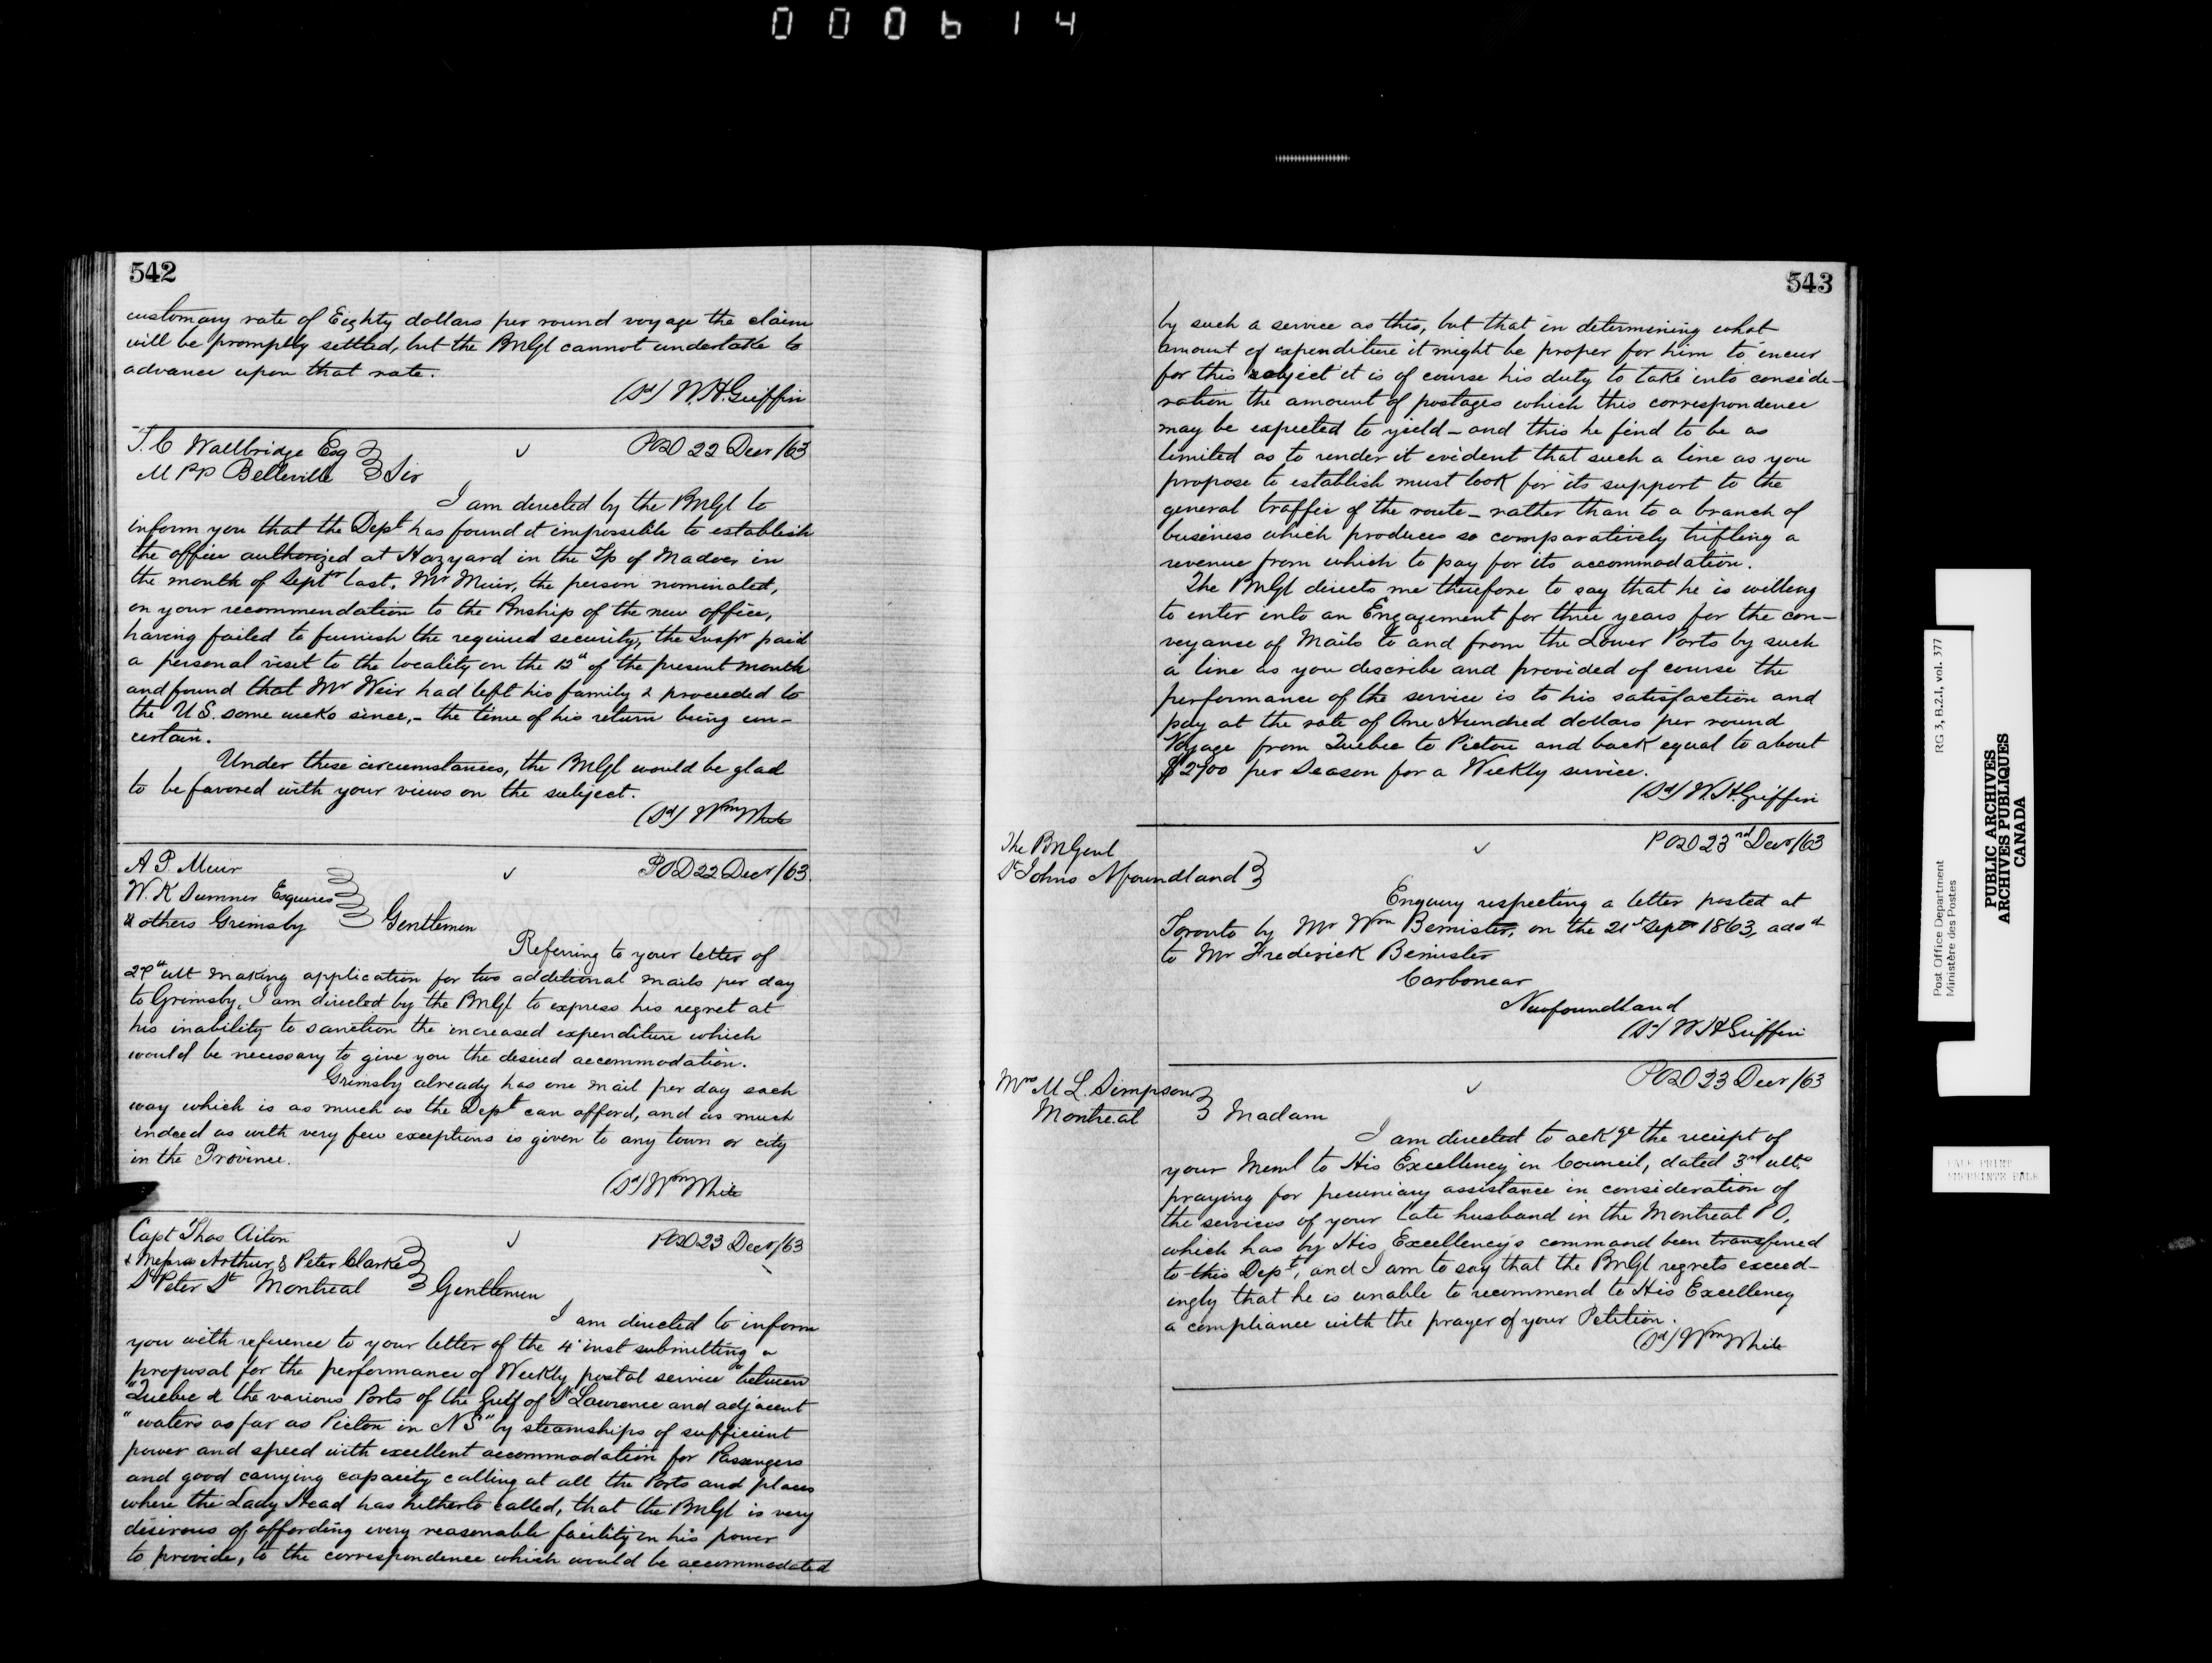 000614
542
customary rate of Eighty dollars per round voyage the claim
will be promptly settled, but the PMGl cannot undertake to
advance upon that rate.
(Sd) W.H. Griffin
T. C Wallbridge Esq
POD 22 Decr /63
M PP Belleville
Sir
I am directed by the PMGl to
inform you that the Dept has found it impossible to establish
the office authorized at Hazyard in the Tp of Madoc, in
the month of Septr last. Mr Muir, the person nominated,
on your recommendation to the Pmship of the new office,
having failed to furnish the required security, the Inspr paid
a personal visit to the locality on the 12th of the present month
and found that Mr Weir had left his family & proceeded to
the U S. some weeks since, - the time of his return being un-
certain.
Under these circumstances, the PMGl would be glad
to be favored with your views on the subject.
(Sd) Wm White
A P. Muir
POD 22 Decr /63.
W. K Sumner Esquires
& others Grimsby
Gentlemen
Referring to your letter of
27th ult making application for two additional mails per day
to Grimsby, I am directed by the PMGl to express his regret at
his inability to sanction the increased expenditure which
would be necessary to give you the desired accommodation.
Grimsby already has one mail per day each
way which is as much as the Dept can afford, and as much
indeed as with very few exceptions is given to any town or city
in the Province.
(Sd) Wm White
Capt Thos Aiton
POD 23 Decr /63
& Messrs Arthur & Peter Clarke
St Peter St Montreal
Gentlemen
I am directed to inform
you with reference to your letter of the 4th inst submitting a
proposal for the performance of Weekly postal service "between
"Quebec & the various Ports of the Gulf of St Lawrence and adjacent
"waters as far as Pictou in N S" by steamships of sufficient
power and speed with excellent accommodation for Passengers
and good carrying capacity calling at all the Ports and places
where the Lady Head has hitherto called, that the PMGl is very
desirous of affording every reasonable facility in his power
to provide, to the correspondence which would be accommodated
543
by such a service as this, but that in determining what
amount of expenditure it might be proper for him to incur
for this subject it is of course his duty to take into conside-
ration the amount of postages which this correspondence
may be expected to yield - and this he find to be as
limited as to render it evident that such a line as you
propose to establish must look for its support to the
general traffic of the route - rather than to a branch of
business which produces so comparatively trifling a
revenue from which to pay for its accommodation.
The PMGl directs me therefore to say that he is willing
to enter into an Engagement for three years for the con-
veyance of Mails to and from the Lower Ports by such
a line as you describe and provided of course the
performance of the service is to his satisfaction and
pay at the rate of One Hundred dollars per round
Voyage from Quebec to Pictou and back equal to about
$2700 per Season for a Weekly service.
(Sd) W.H. Griffin
The PMGenl
POD 23rd Decr /63
St Johns Nfoundland
Enquiry respecting a letter posted at
Toronto by Mr Wm Bemister, on the 21st Septr 1863, adsd
to Mr Frederick Bemister
Carbonear
Newfoundland
(Sd) W H Griffin
POD 23 Decr /63
Mrs M L. Simpson
Montreal
Madam
I am directed to ackge the receipt of
your Meml to His Excellency in Council, dated 3rd ulto
praying for pecuniary assistance in consideration of
the services of your late husband in the Montreal PO,
which has by His Excellency's command been transferred
to this Dept, and I am to say that the PMGl regrets exceed-
ingly that he is unable to recommend to His Excellency
a compliance with the prayer of your Petition.
(Sd) Wm White
Post Office Department RG 3, B.2.1, vol. 377
Ministère des Postes
PUBLIC ARCHIVES
ARCHIVES PUBLIQUES
CANADA
PALE PRINT